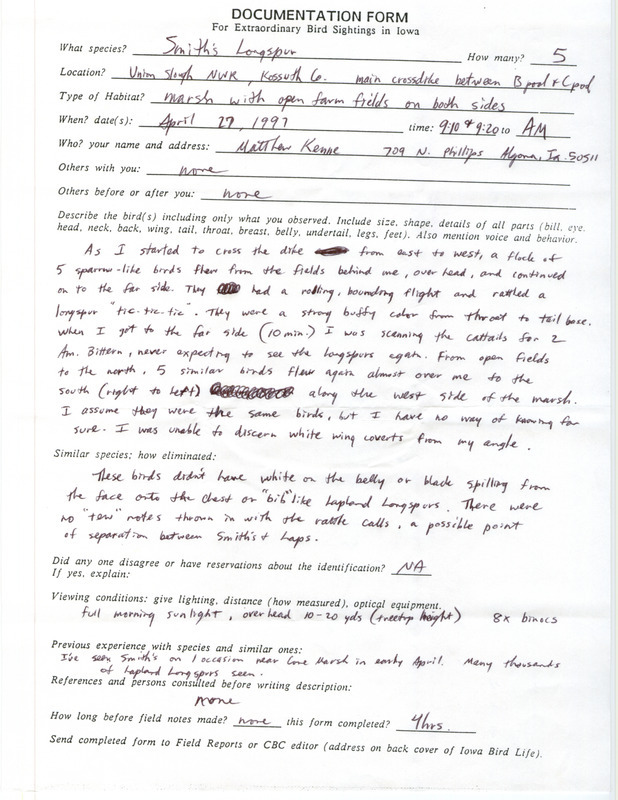 DOCUMENTATION FORM
For Extraordinary Bird Sightings in Iowa
What species? Smith's Longspur How many? 5
Location? Union Slough NWR, Kossuth Co. main crossdike between B pool & C pool
Type of Habitat? marsh with open farm fields on both sides
When? date(s): April 27, 1997 time: 9:10 & 9:20 to AM
Who? your name and address: Matthew Kenne 709 N. Phillips Algona, Ia. 50511
Others with you? none
Others before or after you? none
Describe the bird(s) including only what you observed. Include size, shape, details of all parts (bill, eye,
head, neck, back, wing, tail, throat, breast, belly, undertail, legs, feet). Also mention voice and behavior.
As I started to cross the dike from east to west, a flock of
5 sparrow-like birds flew from the fields behind me, over head, and continued
on to the far side. They had a rolling, bounding flight and rattled a
longspur "tic-tic-tic". They were a strong buffy color from throat to tail base.
When I got to the far side (10 min.) I was scanning the cattails for 2
Am. Bittern, never expecting to see the longspurs again. From open fields
to the north, 5 similar birds flew again almost over me to the
south (right to left) along the west side of the marsh.
I assume they were the same birds, but I have no way of knowing for
sure. I was unable to discern white wing coverts from my angle.
Similar species; how eliminated:
These birds didn't have white on the belly or black spilling from
the face onto the chest or "bib" like Lapland Longspurs. There were
no "tew" notes thrown in with the rattle calls, a possible point
of separation between Smith's & Laps.
Did any one disagree or have reservations about the identification? NA
If yes, explain:
Viewing conditions: give lighting, distance (how measured), optical equipment.
full morning sunlight, overhead 10-20 yds (treetop height) 8x binocs
Previous experience with species and similar ones:
I've seen Smith's on 1 occasion near Cone Marsh in early April. Many thousands
of Lapland Longspurs seen.
References and persons consulted before writing description:
none
How long before field notes made? none this form completed? 4hrs.
Send completed form to Field Reports or CBC editor (address on back cover of Iowa Bird Life).